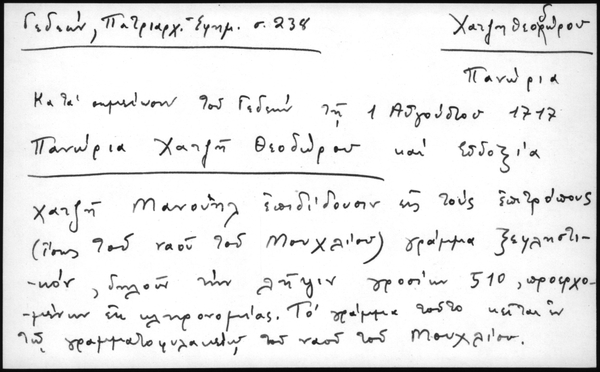 Γεδεών, Πατριαρχ. Ἐφημ. σ. 238
Χατζηθεοδώρου
Πανώρια
Κατὰ σημείωσιν τοῦ Γεδεὼν τῇ 1 Αὐγούστου 1717
Πανώρια Χατζῆ Θεοδώρου καὶ Εὐδοξία
Χατζῆ Μανουὴλ ἐπιδίδουσιν εἰς τοὺς ἐπιτρόπους
(ἴσως τοῦ ναοῦ τοῦ Μουχλίου) γράμμα ξεχλητι-
-κόν, δηλοῦν τὴν λῆψιν γροσίων 510, προερχο-
-μένων ἐκ κληρονομίας. Τὸ γράμμα τοῦτο κεῖται ἐν
τῷ γραμματοφυλακείῳ τοῦ ναοῦ τοῦ Μουχλίου.